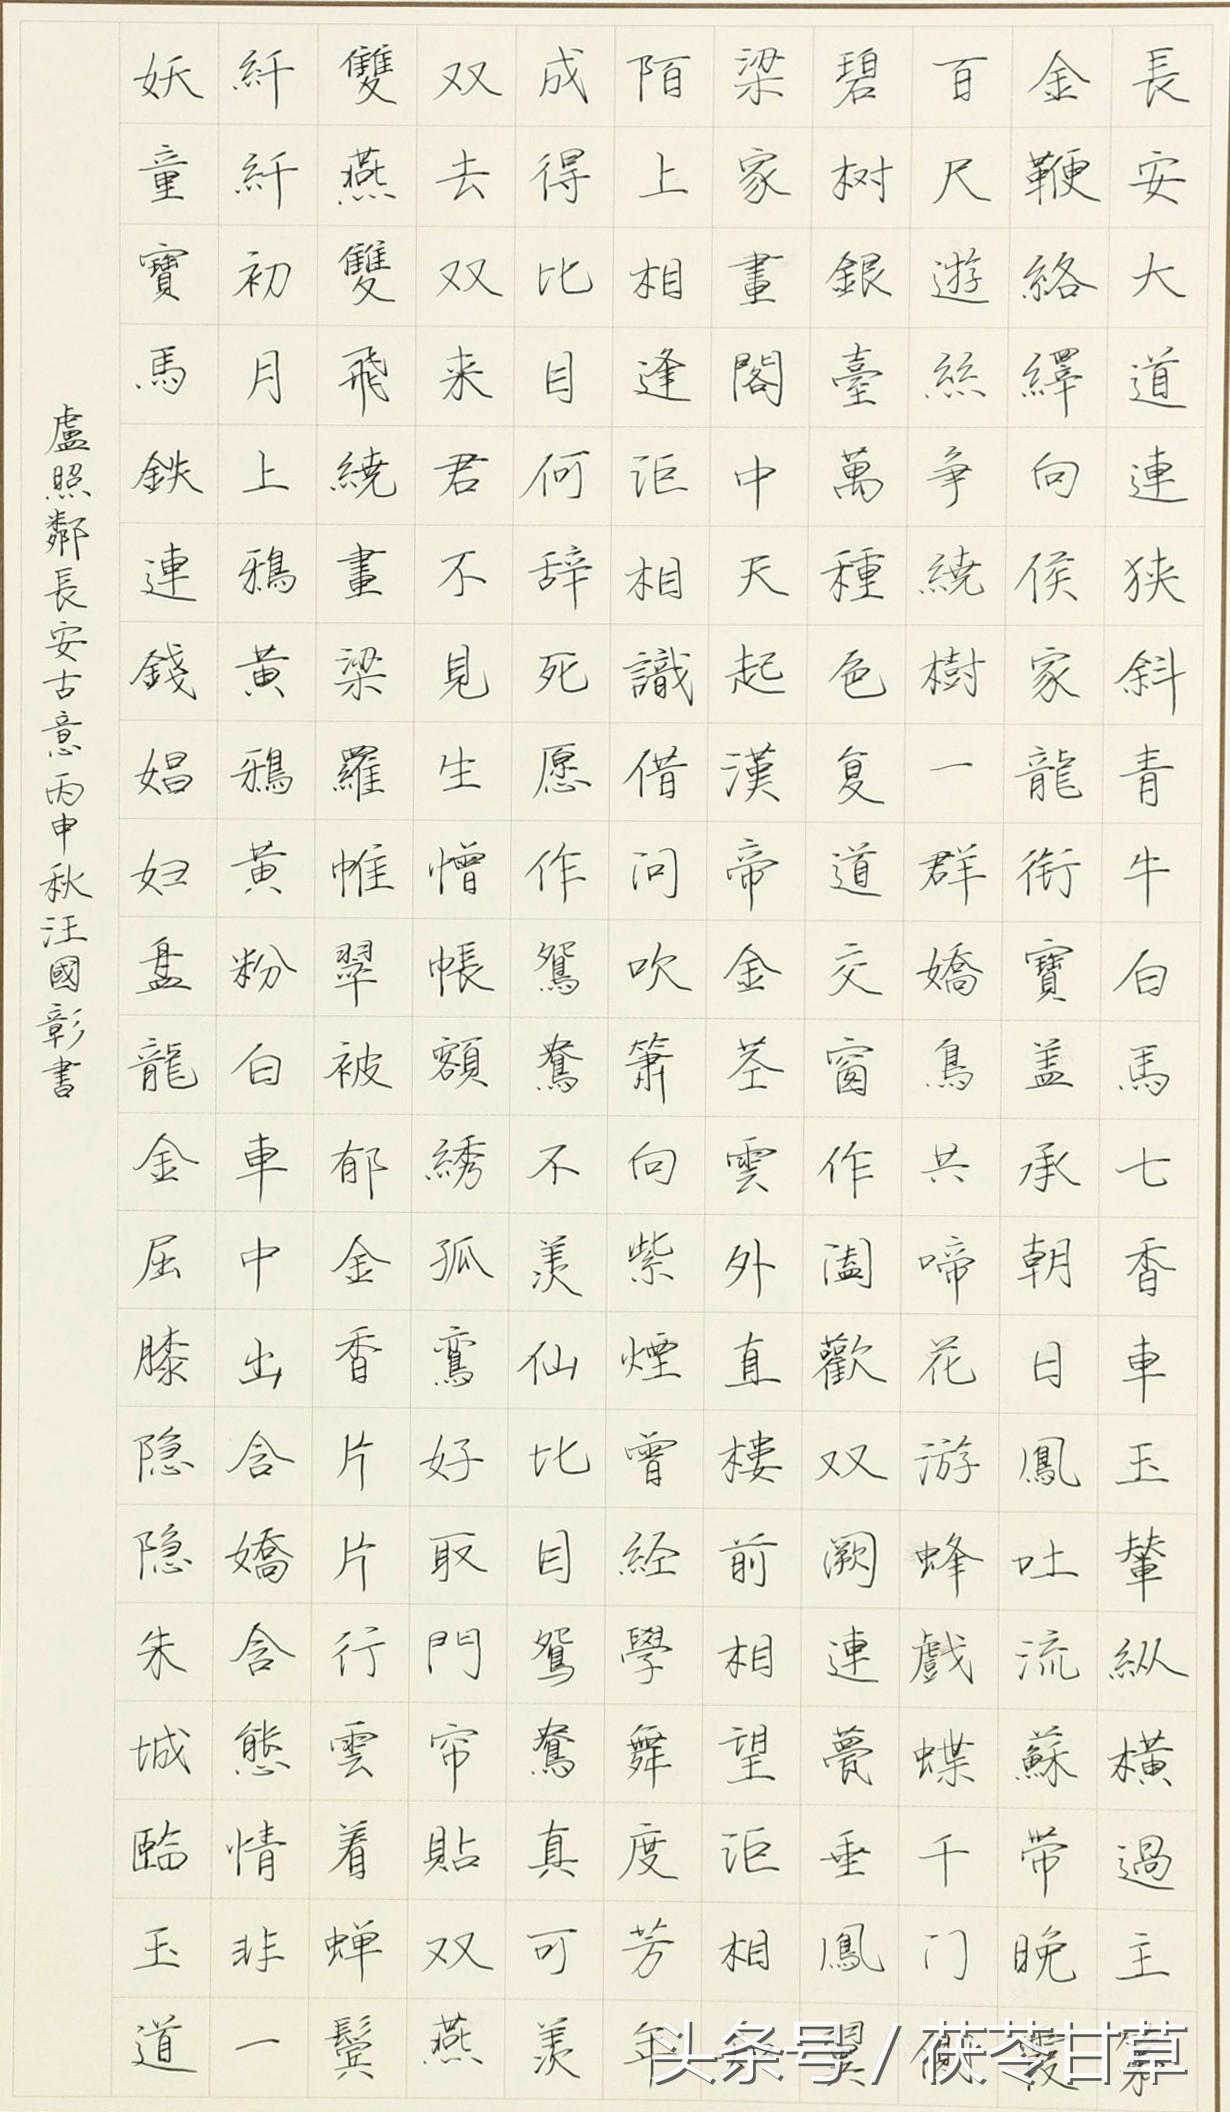 長安大道連狭斜青牛白馬七香車玉輦縱橫過主家
金鞭絡繹向侯家龍銜寶盖承朝日鳳吐流蘇带晚霞
百尺遊絲争繞樹一群嬌鳥共啼花游蜂戲蝶千门側
碧树銀臺萬種色复道交窗作阖歡双阙連甍垂鳳翼
梁家畫閣中天起漢帝金茎雲外直楼前相望讵相
陌上相逢讵相識借问吹箫向紫煙曾经學舞度芳年
成得比目何辞死愿作鴛鴦不羡仙比目鴛鴦真可羡
双去双来君不見生憎帳額綉孤鸞好取門帘貼双燕
雙燕雙飛繞畫梁羅帷翠被郁金香片片行雲着蝉鬓
紆紆初月上鴉黃鴉黃粉白車中出含嬌含態情非一
妖童寶馬鉄連錢娼妇盘龍金屈膝隐隐朱城臨玉道
盧照鄰長安古意丙申秋汪國彰書
头条号/茯苓甘草